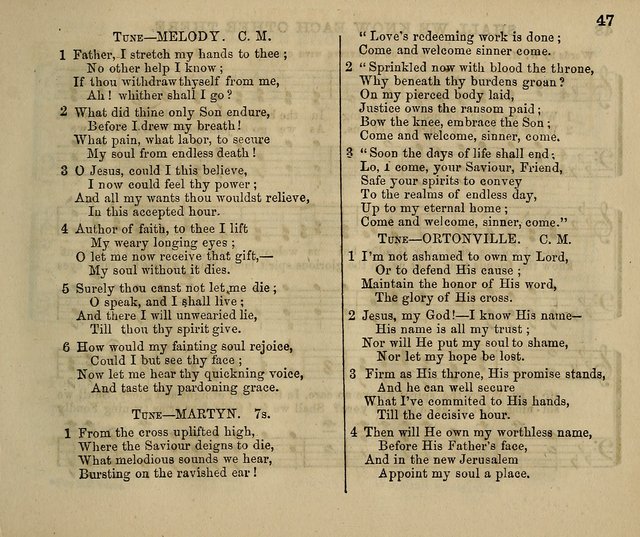 47
Tune—MELODY. C. M.
1 Father, I stretch my hands to thee ;
No other help I know ;
If thou withdraw thyself from me,
Ah ! whither shall I go ?
2 What did thine only Son endure,
Before I drew my breath !
What pain, what labor, to secure
My soul from endless death !
3 O Jesus, could I this believe,
I now could feel thy power ;
And all my wants thou wouldst relieve,
In this accepted hour.
4 Author of faith, to thee I lift
My weary longing eyes ;
O let me now receive that gift,—
My soul without it dies.
5 Surely thou canst not let me die ;
O speak, and I shall live ;
And there I will unwearied lie,
Till thou thy spirit give.
6 How would my fainting soul rejoice,
Could I but see thy face ;
Now let me hear thy quickning voice,
And taste thy pardoning grace.
Tune—MARTYN. 7s.
1 From the cross uplifted high,
Where the Saviour deigns to die,
What melodious sounds we hear,
Bursting on the ravished ear !
" Love's redeeming work is done ;
Come and welcome sinner come.
2 " Sprinkled now with blood the throne,
Why beneath thy burdens groan ?
On my pierced body laid,
Justice owns the ransom paid ;
Bow the knee, embrace the Son ;
Come and welcome, sinner, come.
3 " Soon the days of life shall end ;
Lo, I come, your Saviour, Friend,
Safe your spirits to convey
To the realms of endless day,
Up to my eternal home ;
Come and welcome, sinner, come."
Tune—ORTONVILLE. C. M.
1 I'm not ashamed to own my Lord,
Or to defend His cause ;
Maintain the honor of His word,
The glory of His cross.
2 Jesus, my God!—I know His name—
His name is all my trust ;
Nor will He put my soul to shame,
Nor let my hope be lost.
3 Firm as His throne, His promise stands,
And he can well secure
What I've commited to His hands,
Till the decisive hour.
4 Then will He own my worthless name,
Before His Father's face,
And in the new Jerusalem
Appoint my soul a place.